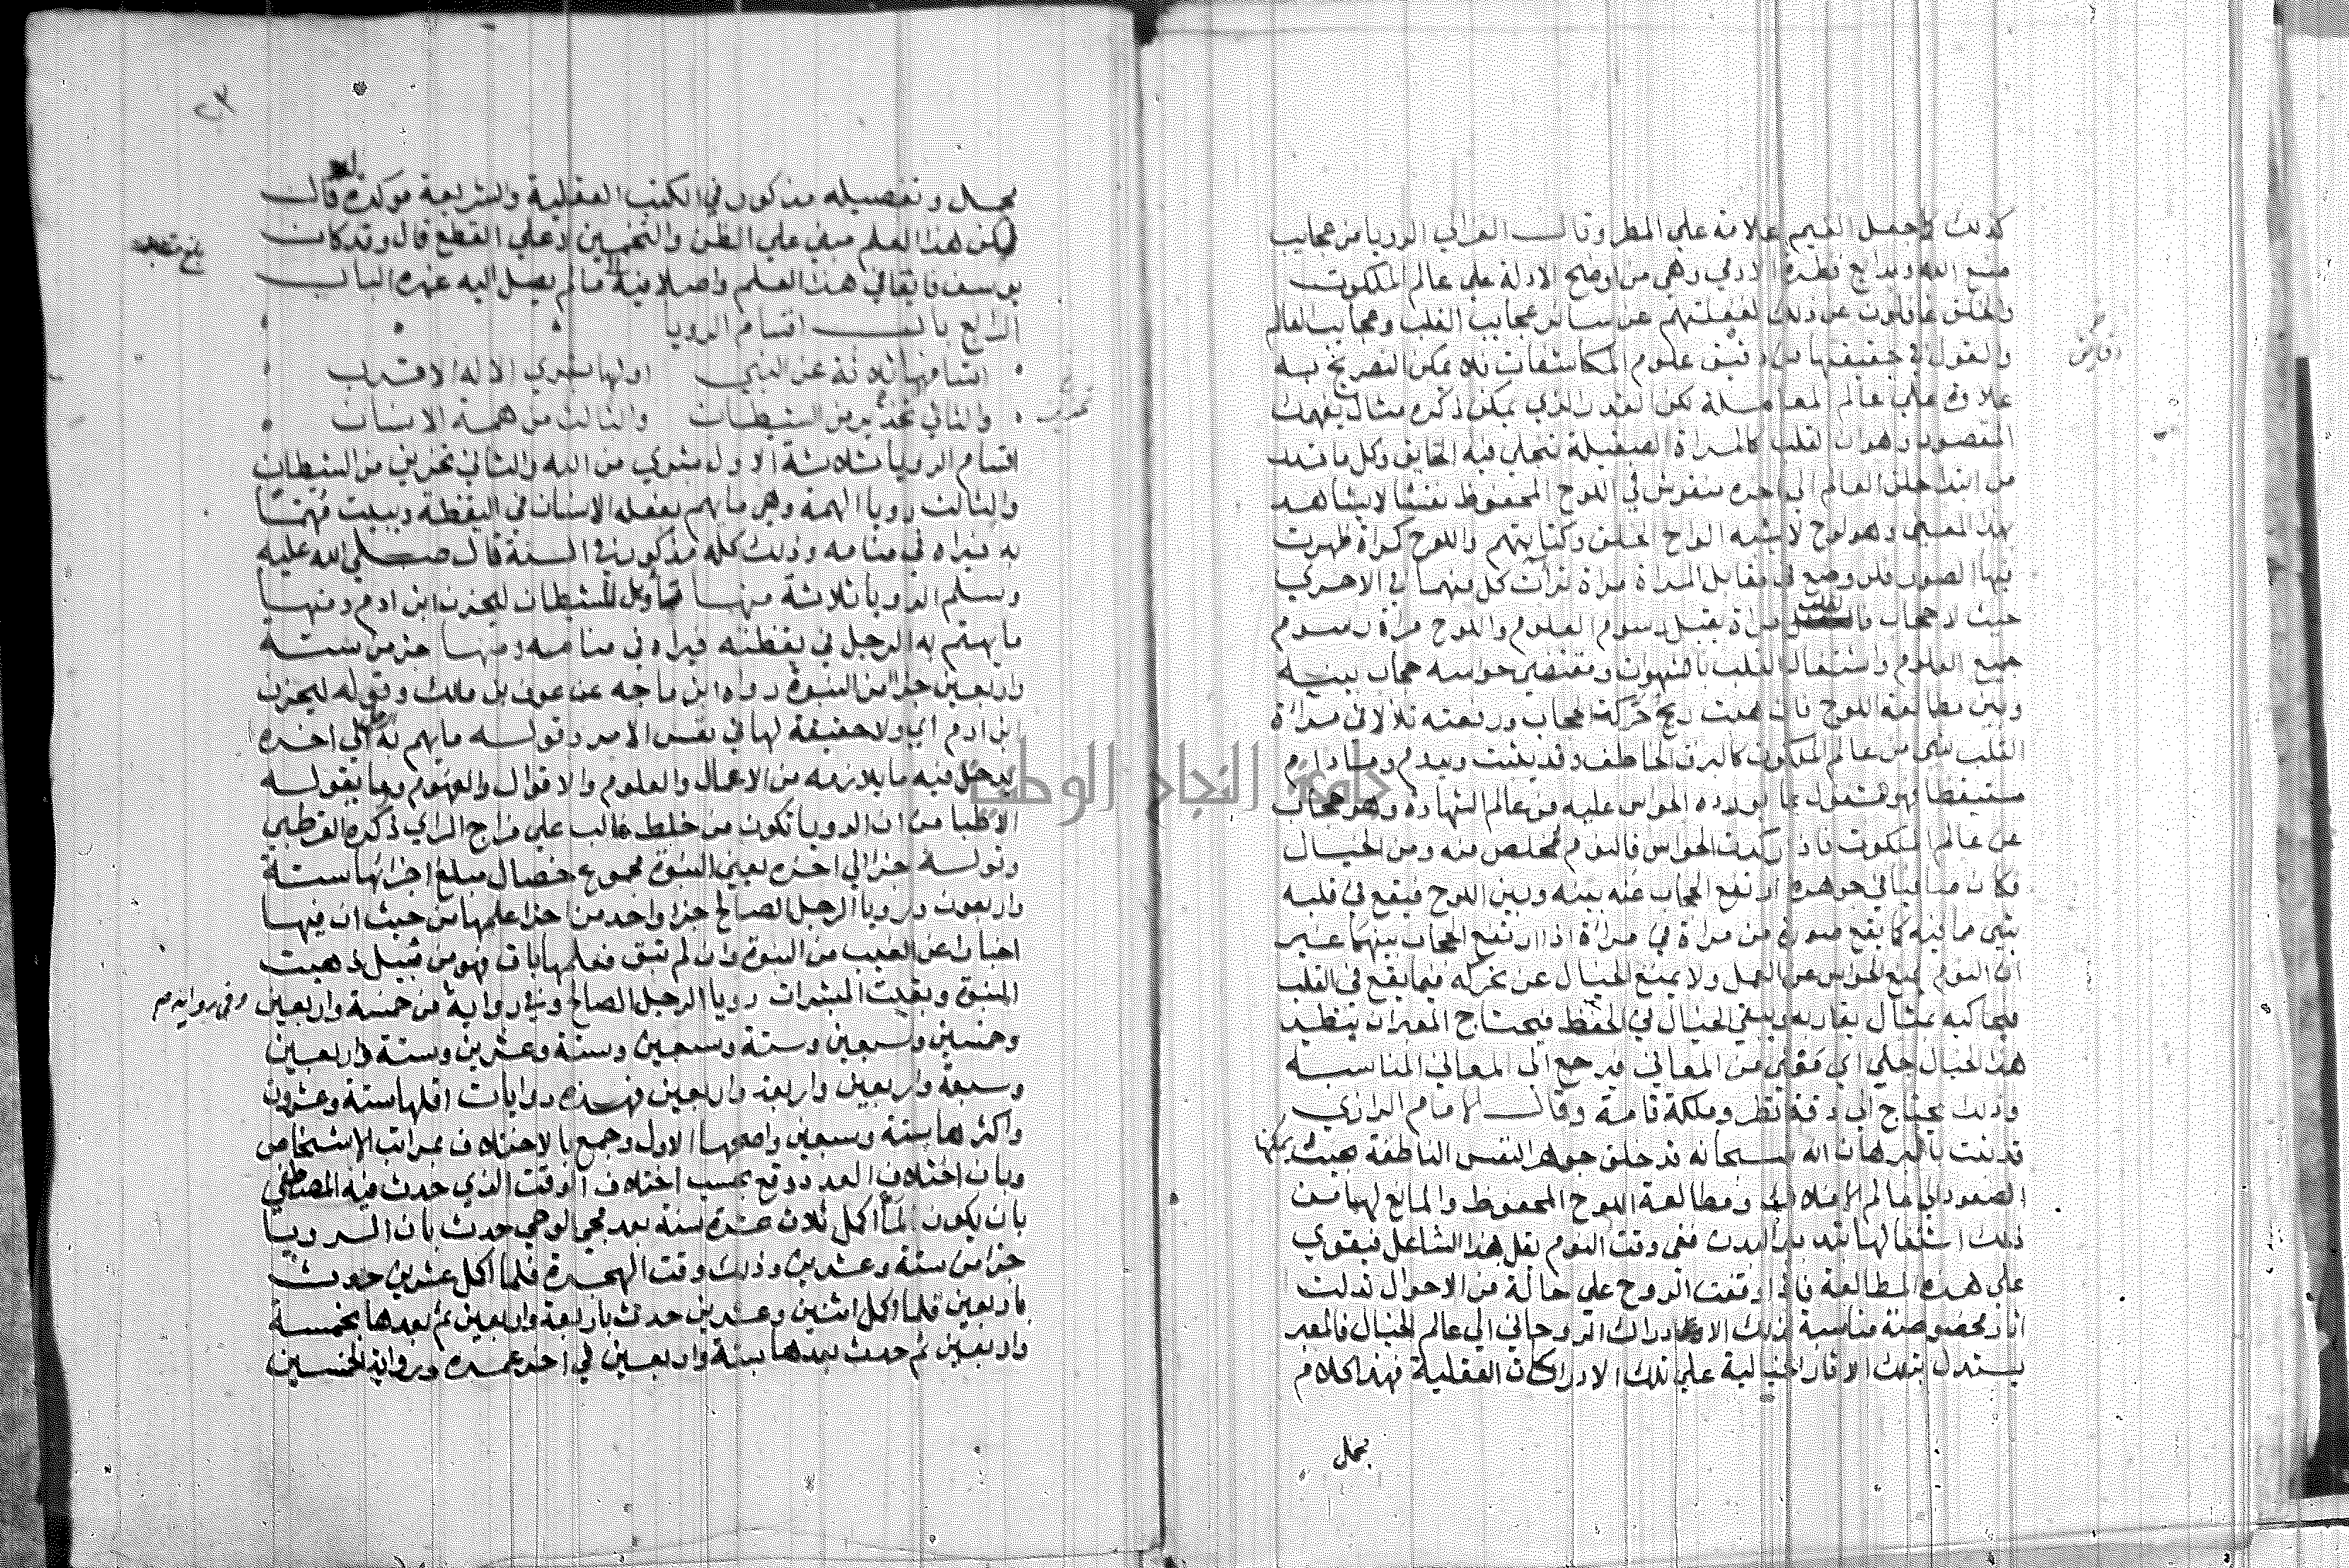 كذلك كما جعل الغيم علامة علي المطر وقال الغزالي الرويا من عجايب
صنع الله وبدايع فطرة الادمي وهي من اوضح الادلة علي عالم الملكوت
والخلق غافلون عن ذلك لغفلتهم عن ساير عجايب القلب وعجايب العالم
والقول في حقيقتها من دقيق علوم المكاشفات فلا يمكن التصريح به
دقايق
علاوة علي عالم المعاملة لكن القدر الذي يمكن ذكره مثال يفهمك
المقصود وهو ان القلب كالمراة الصقيلة تتجلي فيه الحقايق وكل ما قدر
من ابتدا خلق العالم الي اخره منقوش في اللوح المحفوظ نقشا لا يشاهد
بهذا المعنى وهو لوح لا يشبه الواح الخلق وكتابتهم واللوح كمراة ظهرت
فيها الصور فلو وضع في مقابل المراة مراة ترأت كل منهما في الاخري
حيث لا حجاب فالقلب مراة يقبل رسوم العلوم واللوح مراة رسوم
جميع العلوم واشتغال القلب بالشهوات ومقتضي حواسه حجاب بينه
وبين مطالعة اللوح فان هبت ريح حركة الحجاب ورفعته تلالا في مراة
القلب شي من عالم الملكوت كالبرق الخاطف وقد يثبت ويدوم وما دام
مستيقظا فهو مشغول بما تورده الحواس عليه من عالم الشهادة وهو حجاب
عن عالم الملكوت فاذا ركدت الحواس فالنوم تخلص منه ومن الخيال
فكان صافيا في جوهره ارتفع الحجاب عنه بينه وبين اللوح فيقع في قلبه
شي مما فيه كما يقع صورة من مراة في مراة اذا ارتفع الحجاب بينهما غير
ان النوم يمنع الحواس عن العمل ولا يمنع الخيال عن تحركه فيما يقع في القلب
فيحاكيه بمثال يقاربه ويبقي الخيال في الحفظ فيحتاج المعبر ان ينظر
هذا الخيال حكي اي معنى من المعاني فيرجع الى المعاني المناسبه
وذلك يحتاج الي دقة نظر وملكة تامة وقال الامام الرازي
قد ثبت بالبرهان انه سبحانه قد خلق جوهر النفس الناطقة بحيث يمكنها
الصعود الي عالم الافلاك ومطالعة اللوح المحفوظ والمانع لها من
ذلك اشتغالها بتدبير البدن ففي وقت النوم يقل هذا الشاغل فيقوي
علي هذه المطالعة فاذا وقفت الروح علي حالة من الاحوال نزلت
اثار مخصوصة مناسبة لذلك الادراك الروحاني الي عالم الخيال فالمعبر
يستدل بتلك الاثار الخيالية علي تلك الادراكات العقلية فهذا كلام
بجمل
٢٣
مجمل وتفصيله مذكور في الكتب العقلية والشريعة موكدة له قال
لكن هذا العلم مبني علي الظن والتخمين لا علي القطع قال وقد كان
بلغ مقابلة
يوسف فايقا في هذا العلم واصلا فيه الي ما لم يصل اليه غيره الباب
الرابع باب اقسام الرويا
اقسامها ثلاثة عن النبي اولها بشري الاله الاقرب
والثاني تحذير من الشيطان والثالث من همة الانسان
تحزين
اقسام الرويا ثلاثة الاول بشري من الله والثاني تحزين من الشيطان
والثالث رويا الهمة وهو ما يهم بفعله الانسان في اليقظة ويبيت مهتما
به فيراه في منامه وذلك كله مذكور في السنة قال صلي الله عليه
وسلم الرويا ثلاثة منها تهاويل للشيطان ليحزن ابن ادم ومنها
ما يهتم به الرجل في يقظته فيراه في منامه ومنها جز من ستة
واربعين جزا من النبوة رواه ابن ماجه عن عوف بن مالك وقوله ليحزن
ابن ادم اي ولا حقيقة لها في نفس الامر وقوله ما يهم به الرجل الي اخره
يدخل فيه ما يلازمه من الاعمال والعلوم والاقوال والهموم وما يقوله
الاطبا من ان الرويا تكون من خلط غالب علي مزاج الراي ذكره القرطبي
وقوله جزا الي اخره يعني النبوة مجموع خصال مبلغ اجزائها ستة
واربعون ورويا الرجل الصالح جزا واحد من اجزا علمها من حيث ان فيها
اخبارا عن الغيب من النبوة وان لم تبق فعلمها باق فهو من قبيل ذهبت
النبوة وبقيت المبشرات رويا الرجل الصالح وفي رواية من خمسة واربعين
وفي رواية من
وخمسين وسبعين وستة وسبعين وستة وعشرين وستة واربعين
وسبعة واربعين واربعة واربعين فهذه روايات اقلها ستة وعشرون
واكثرها ستة وسبعين واصحها الاول وجمع بالاختلاف بمراتب الاشخاص
وبان اختلاف العدد وقع بحسب اختلاف الوقت الذي حدث فيه المصطفي
بان يكون لما اكمل ثلاث عشرة سنة بعد مجي الوحي حدث بان الرويا
جزا من ستة وعشرين وذلك وقت الهجرة فلما اكمل عشرين حدث
باربعين فلما اكمل اثنين وعشرين حدث باربعة واربعين ثم بعدها بخمسة
واربعين ثم حدث بعدها بستة واربعين في اخر عمره ورواية الخمسين
جامعة النجاح الوطنية